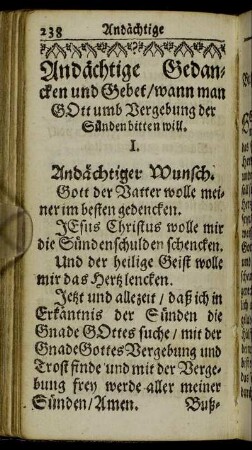 238 Andächtige
Andächtige Gedan-
cken und Gebet/wann man
GOtt umb Vergebung der
Sünden bitten will.
I.
Andächtiger Wunsch.
Gott der Vatter wolle mei-
ner im besten gedencken.
JEsus Christus wolle mir
die Sündenschulden schencken.
Und der heilige Geist wolle
mir das Hertz lencken.
Jetzt und allezeit/ daß ich in
Erkäntnis der Sünden die
Gnade GOttes suche/ mit der
Gnade Gottes Vergebung und
Trost finde und mit der Verge-
bung frey werde aller meiner
Sünden/ Amen. Buß-